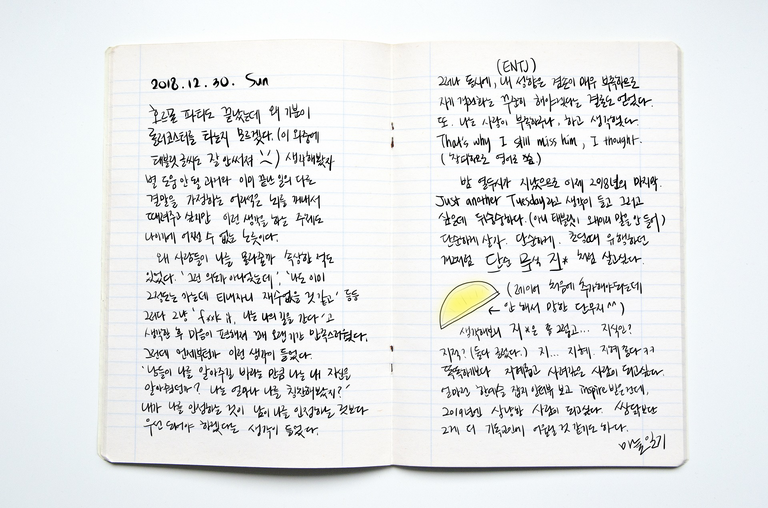 2018. 12. 30. Sun
호르몬 파티도 끝났는데 왜 기분이
롤러코스터를 타는지 모르겠다. (이 와중에
태블릿 글씨도 잘 안써져 ) 생각해봤자
별 도움 안 될 과거와 이미 끝난 일의 다른
결말을 가정하는 어리석은 뇌를 꺼내서
때려주고 싶지만 이런 생각을 하는 주체도
나이기에 어쩔 수 없는 노릇이다.
왜 사람들이 나를 몰라줄까 속상한 적도
있었다. '그런 의도가 아니었는데', '나도 이미
그정도는 아는데 티내자니 재수없을 것 같고' 등등
그러다 그냥 'f**k it, 나는 나의 길을 간다'고
생각한 후 마음이 편해져 꽤 오랜기간 만족스러웠다.
그런데 언제부턴가 이런 생각이 들었다.
'남들이 나를 알아주길 바라는 만큼 나는 내 자신을
알아줬던가? 나는 얼마나 나를 칭찬해봤지?'
내가 나를 인정하는 것이 남이 나를 인정하는 것보다
우선 돼야 하겠다는 생각이 들었다.
(ENTJ)
그러나 동시에, 내 성향은 겸손이 매우 부족하므로
자기 객관화는 꾸준히 해야겠다는 결론도 얻었다.
또. 나는 사랑이 부족하구나, 하고 생각했다.
That's why I still miss him, I thought.
밤 열두시가 지났으므로 이제 2018년의 마지막.
Just another Tuesday라고 생각이 들고 그리고
싱숭 뒤숭숭하다. (아니 태블릿이 왜이리 말을 안 들어)
단순하게 살자. 단순하게. 유행하던
단순 무식 지* 처럼 살고싶다.
(레이어 처음에 추가해야되는데
← 안 해서 망한 단무지 ^^)
생각해보니 지*은 좀 그렇고... 지식인?
지적? (둘다 싫었다.) 지... 지혜. 지혜 좋다 ㅋㅋ
똑똑하기보다 지혜롭고 사려깊은 사람이 되고싶다.
얼마전 한예슬 잡지 인터뷰 보고 inspire 받은건데,
2019년엔 상냥한 사람이 되고싶다. 쌀쌀보다
그게 더 기독교인에 어울릴 것 같기도 하다.
마늘일기